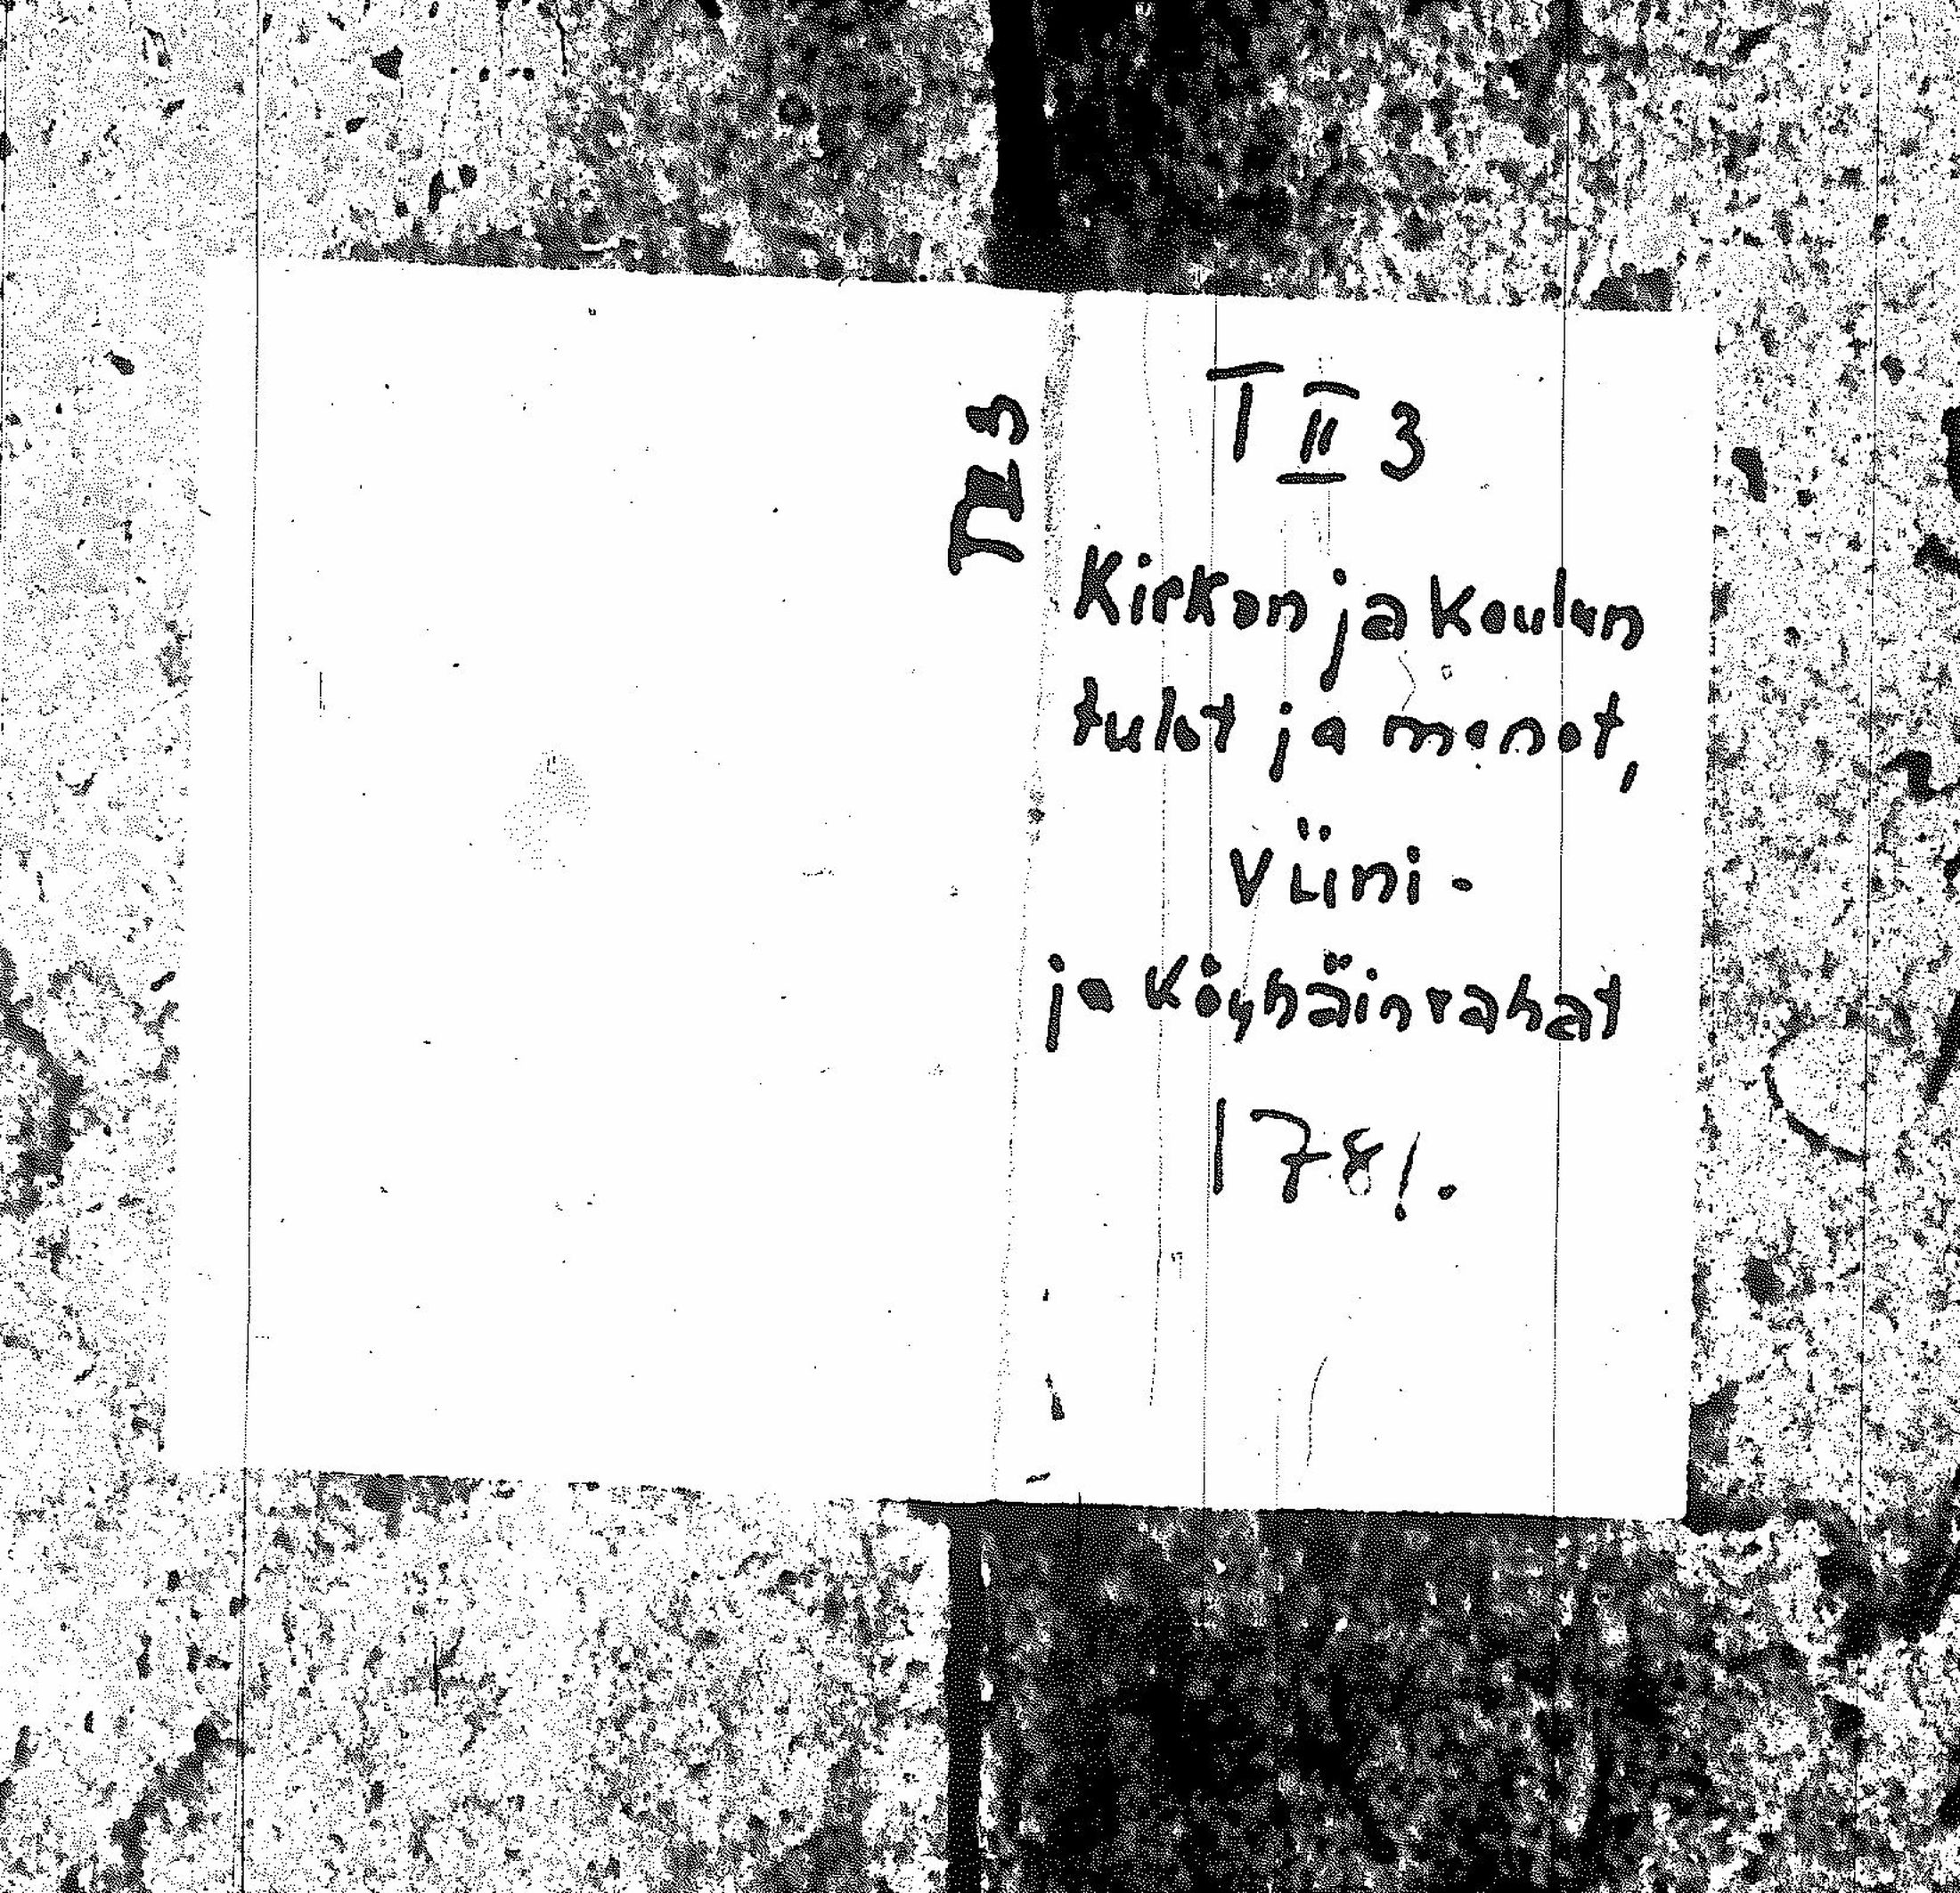 T II 3
T II 3
Kirkon ja koulun
tulot ja menot,
Viini-
ja köyhäinrahat
1781.